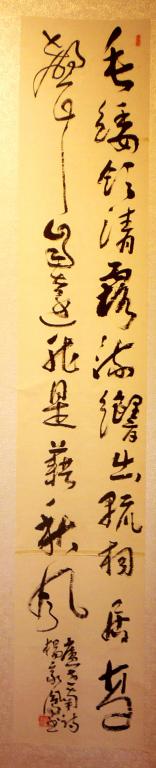 垂緌飲清露流響出疏桐居高
聲自遠非是藉秋風
虞世南詩